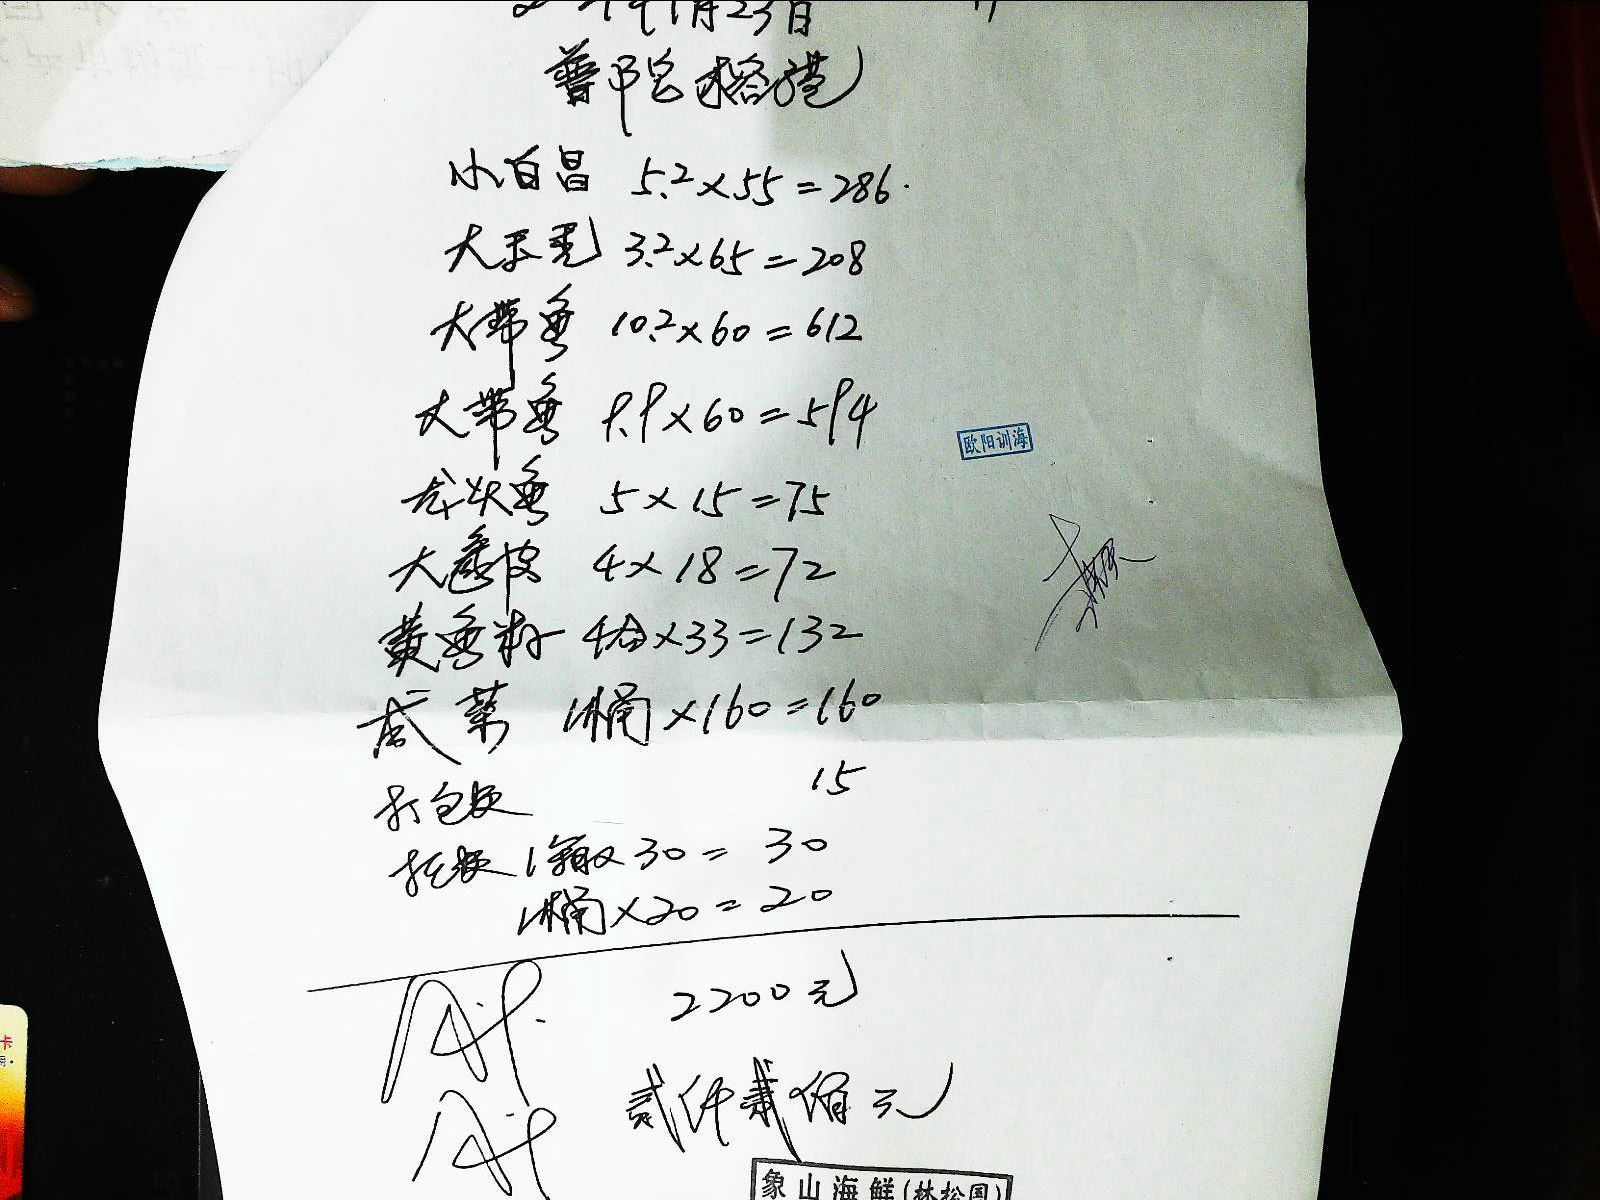 年1月23日
小白昌 5.2×55=286.
大玉秃 3.2×65=208
大带鱼 10.2×60=612
大带鱼 9.9×60=594
欧阳训海
龙头鱼 5×15=75
大鱼皮 4×18=72
黄鱼籽 4合×33=132
咸菜 1桶×160=160
打包费 15
托费 1箱×30=30
1桶×20=20
2200元
贰仟贰佰元
象山海鲜(林松国)